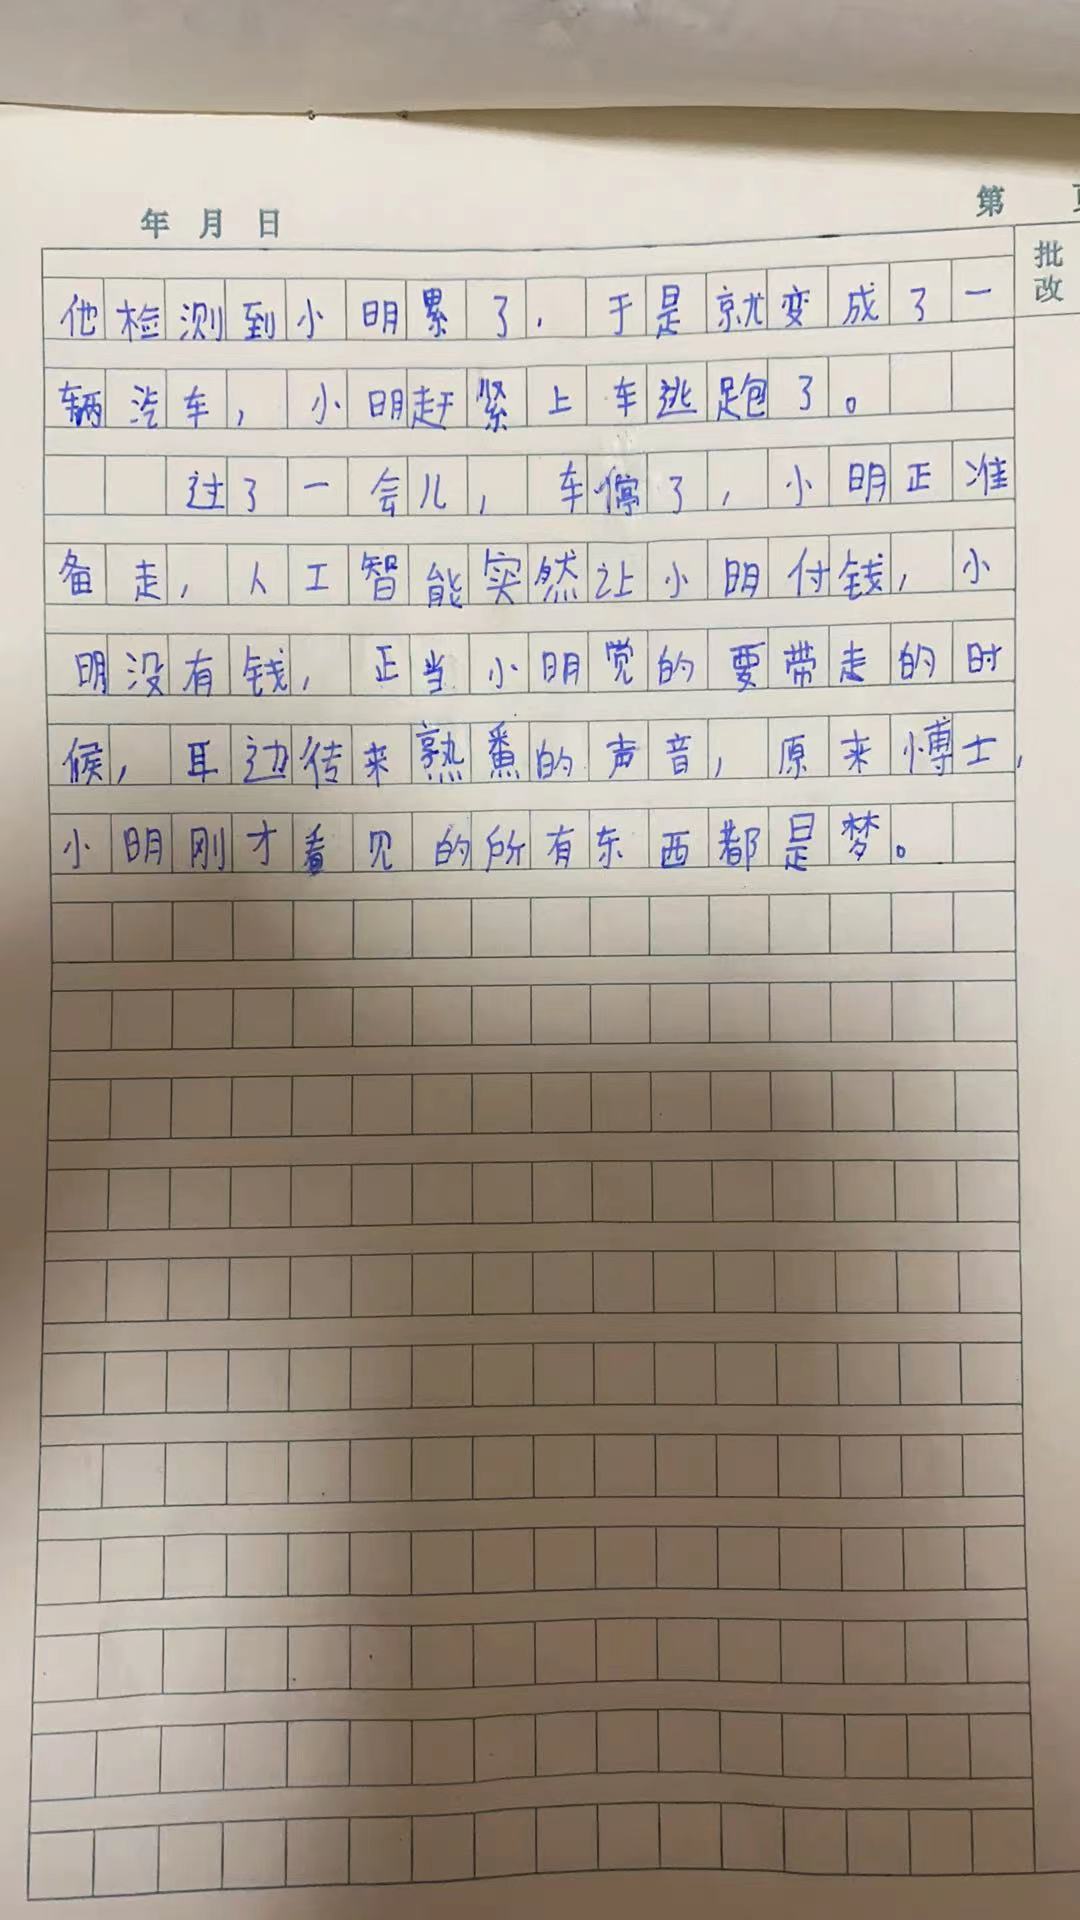 年 月 日
第
批改
他检测到小明累了，于是就变成了一
辆汽车，小明赶紧上车逃跑了。
过了一会儿，车停了，小明正准
备走，人工智能突然让小明付钱，小
明没有钱，正当小明觉的要带走的时
候，耳边传来熟番的声音，原来博士，
小明刚才看见的所有东西都是梦。